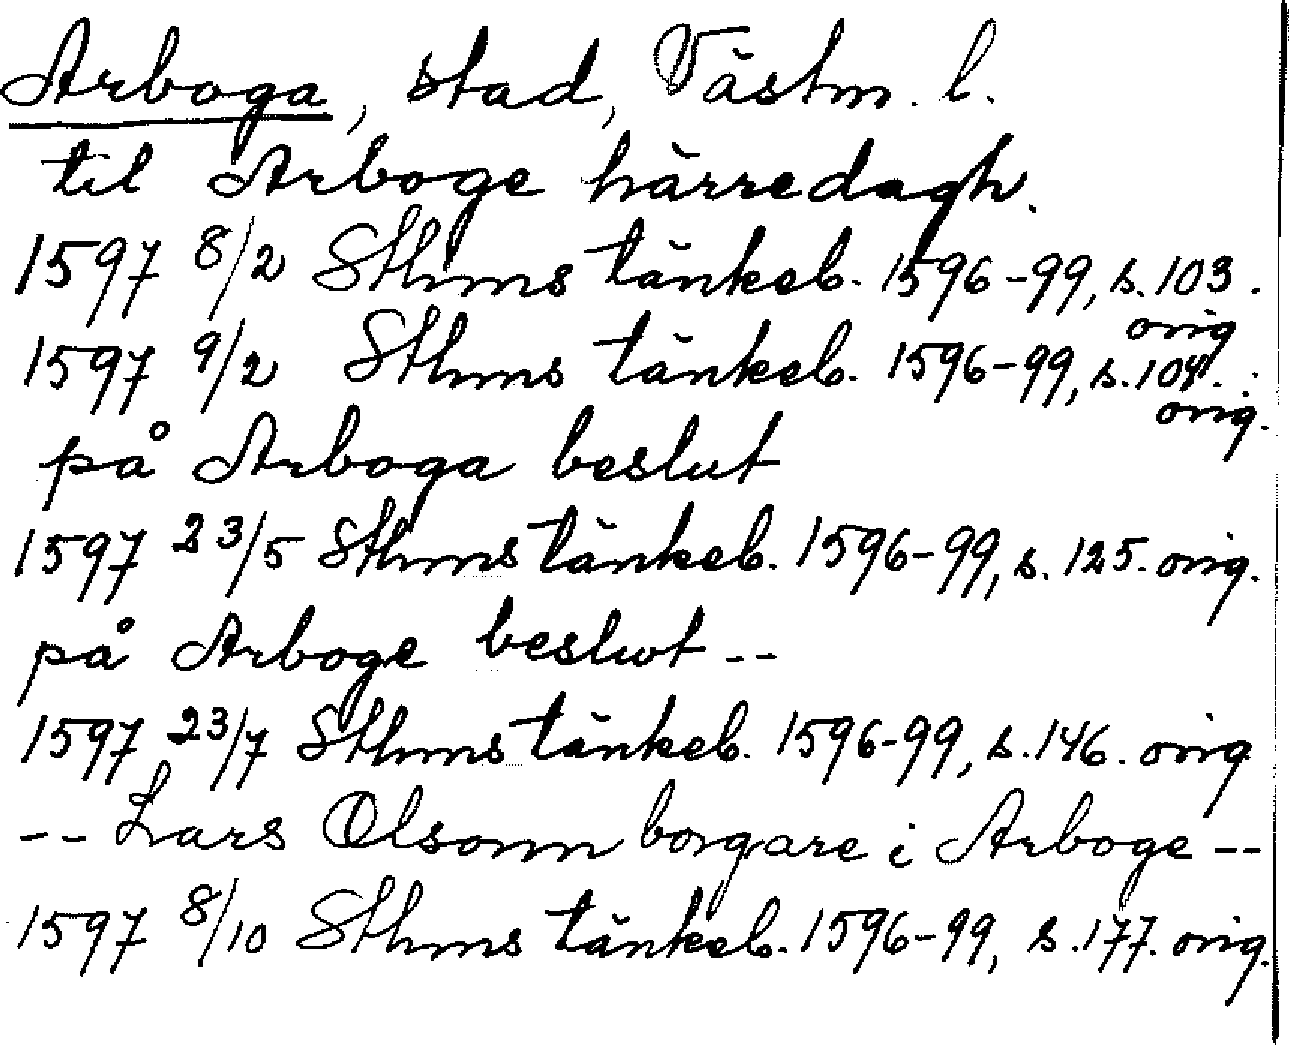 Arboga, stad, Västm. l.
til Arboge härredagh.
1597 8/2 Sthms tänkeb. 1596-99, s. 103.
orig
1597 9/2 Sthms tänkeb. 1596-99, s. 104.
orig.
på Arboga beslut
1597 23/5 Sthms tänkeb. 1596-99, s. 125. orig.
på Arboge beslwt --
1597 23/7 Sthms tänkeb. 1596-99, s. 146. orig
-- Lars Olsonn borgare i Arboge --
1597 8/10 Sthms tänkeb. 1596-99, s. 177. orig.